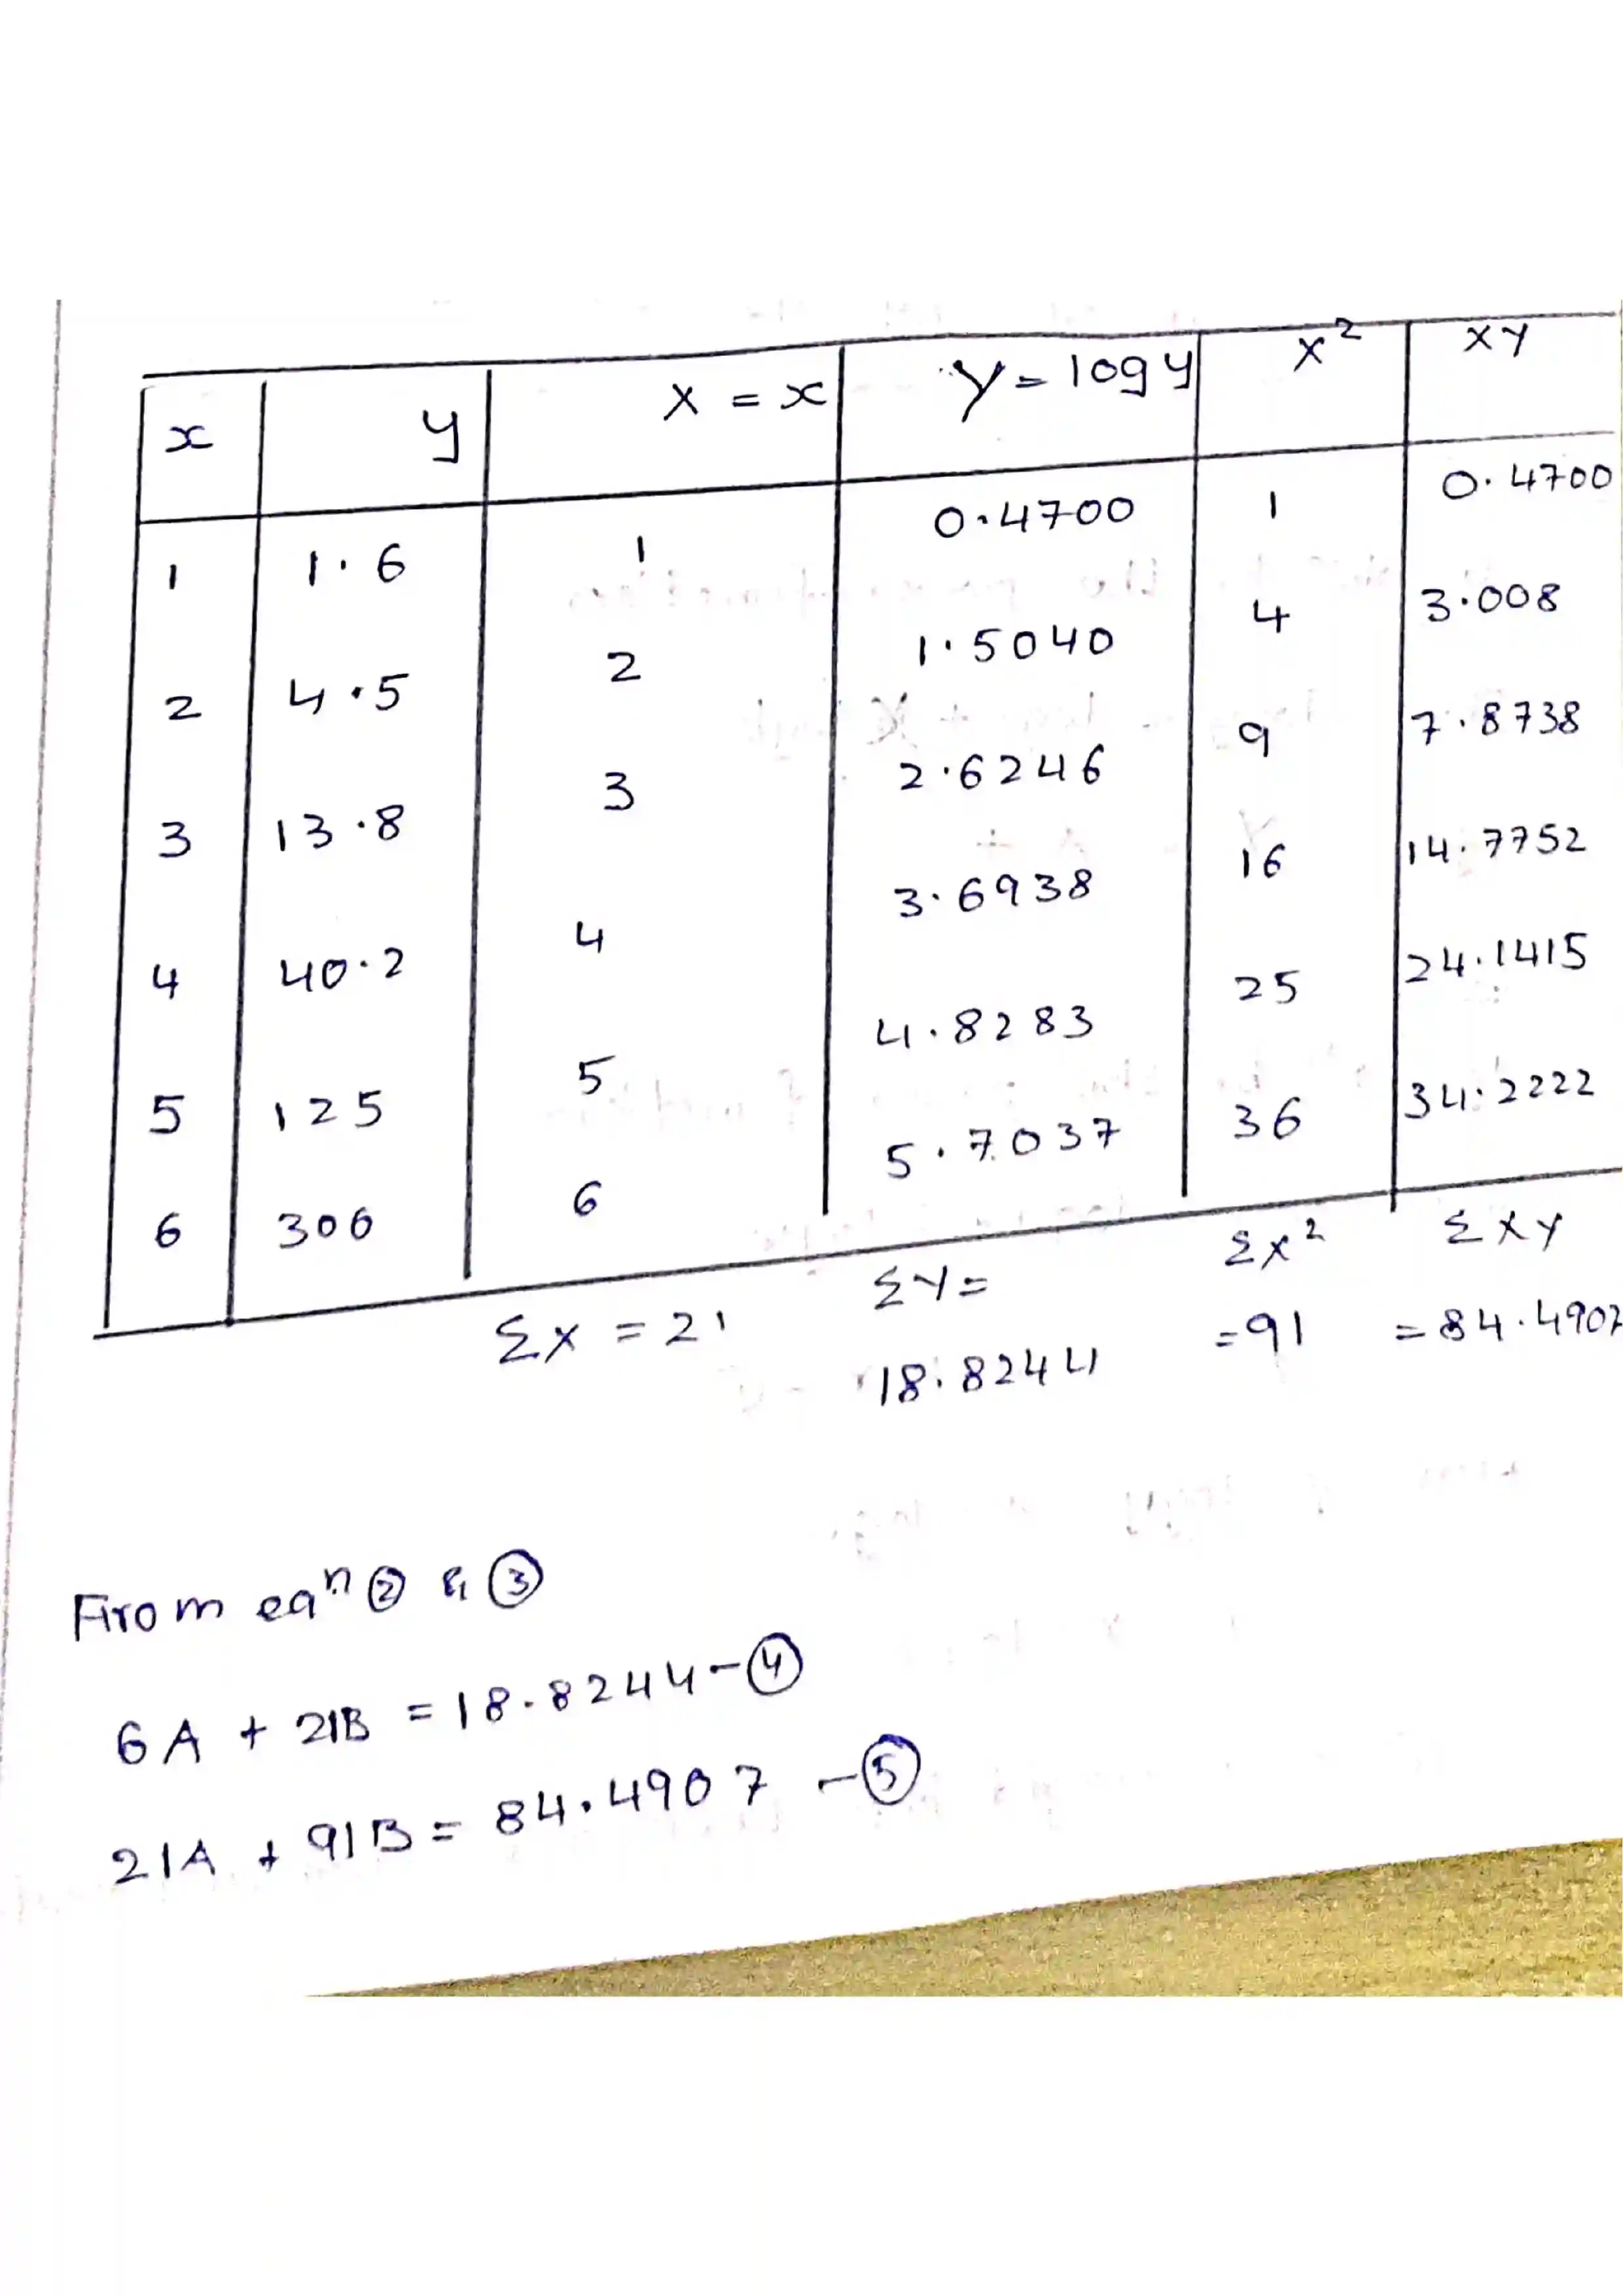 x y X = x Y = log y X² XY
1 1.6 1 0.4700 1 0.4700
2 4.5 2 1.5040 4 3.008
3 13.8 3 2.6246 9 7.8738
4 40.2 4 3.6938 16 14.7752
5 125 5 4.8283 25 24.1415
6 300 6 5.7037 36 34.2222
Σx = 21 ΣY= Σx² ΣXY
18.8244 =91 = 84.4907
From eqⁿ ② & ③
6A + 21B = 18.8244 - ④
21A + 91B = 84.4907 - ⑤